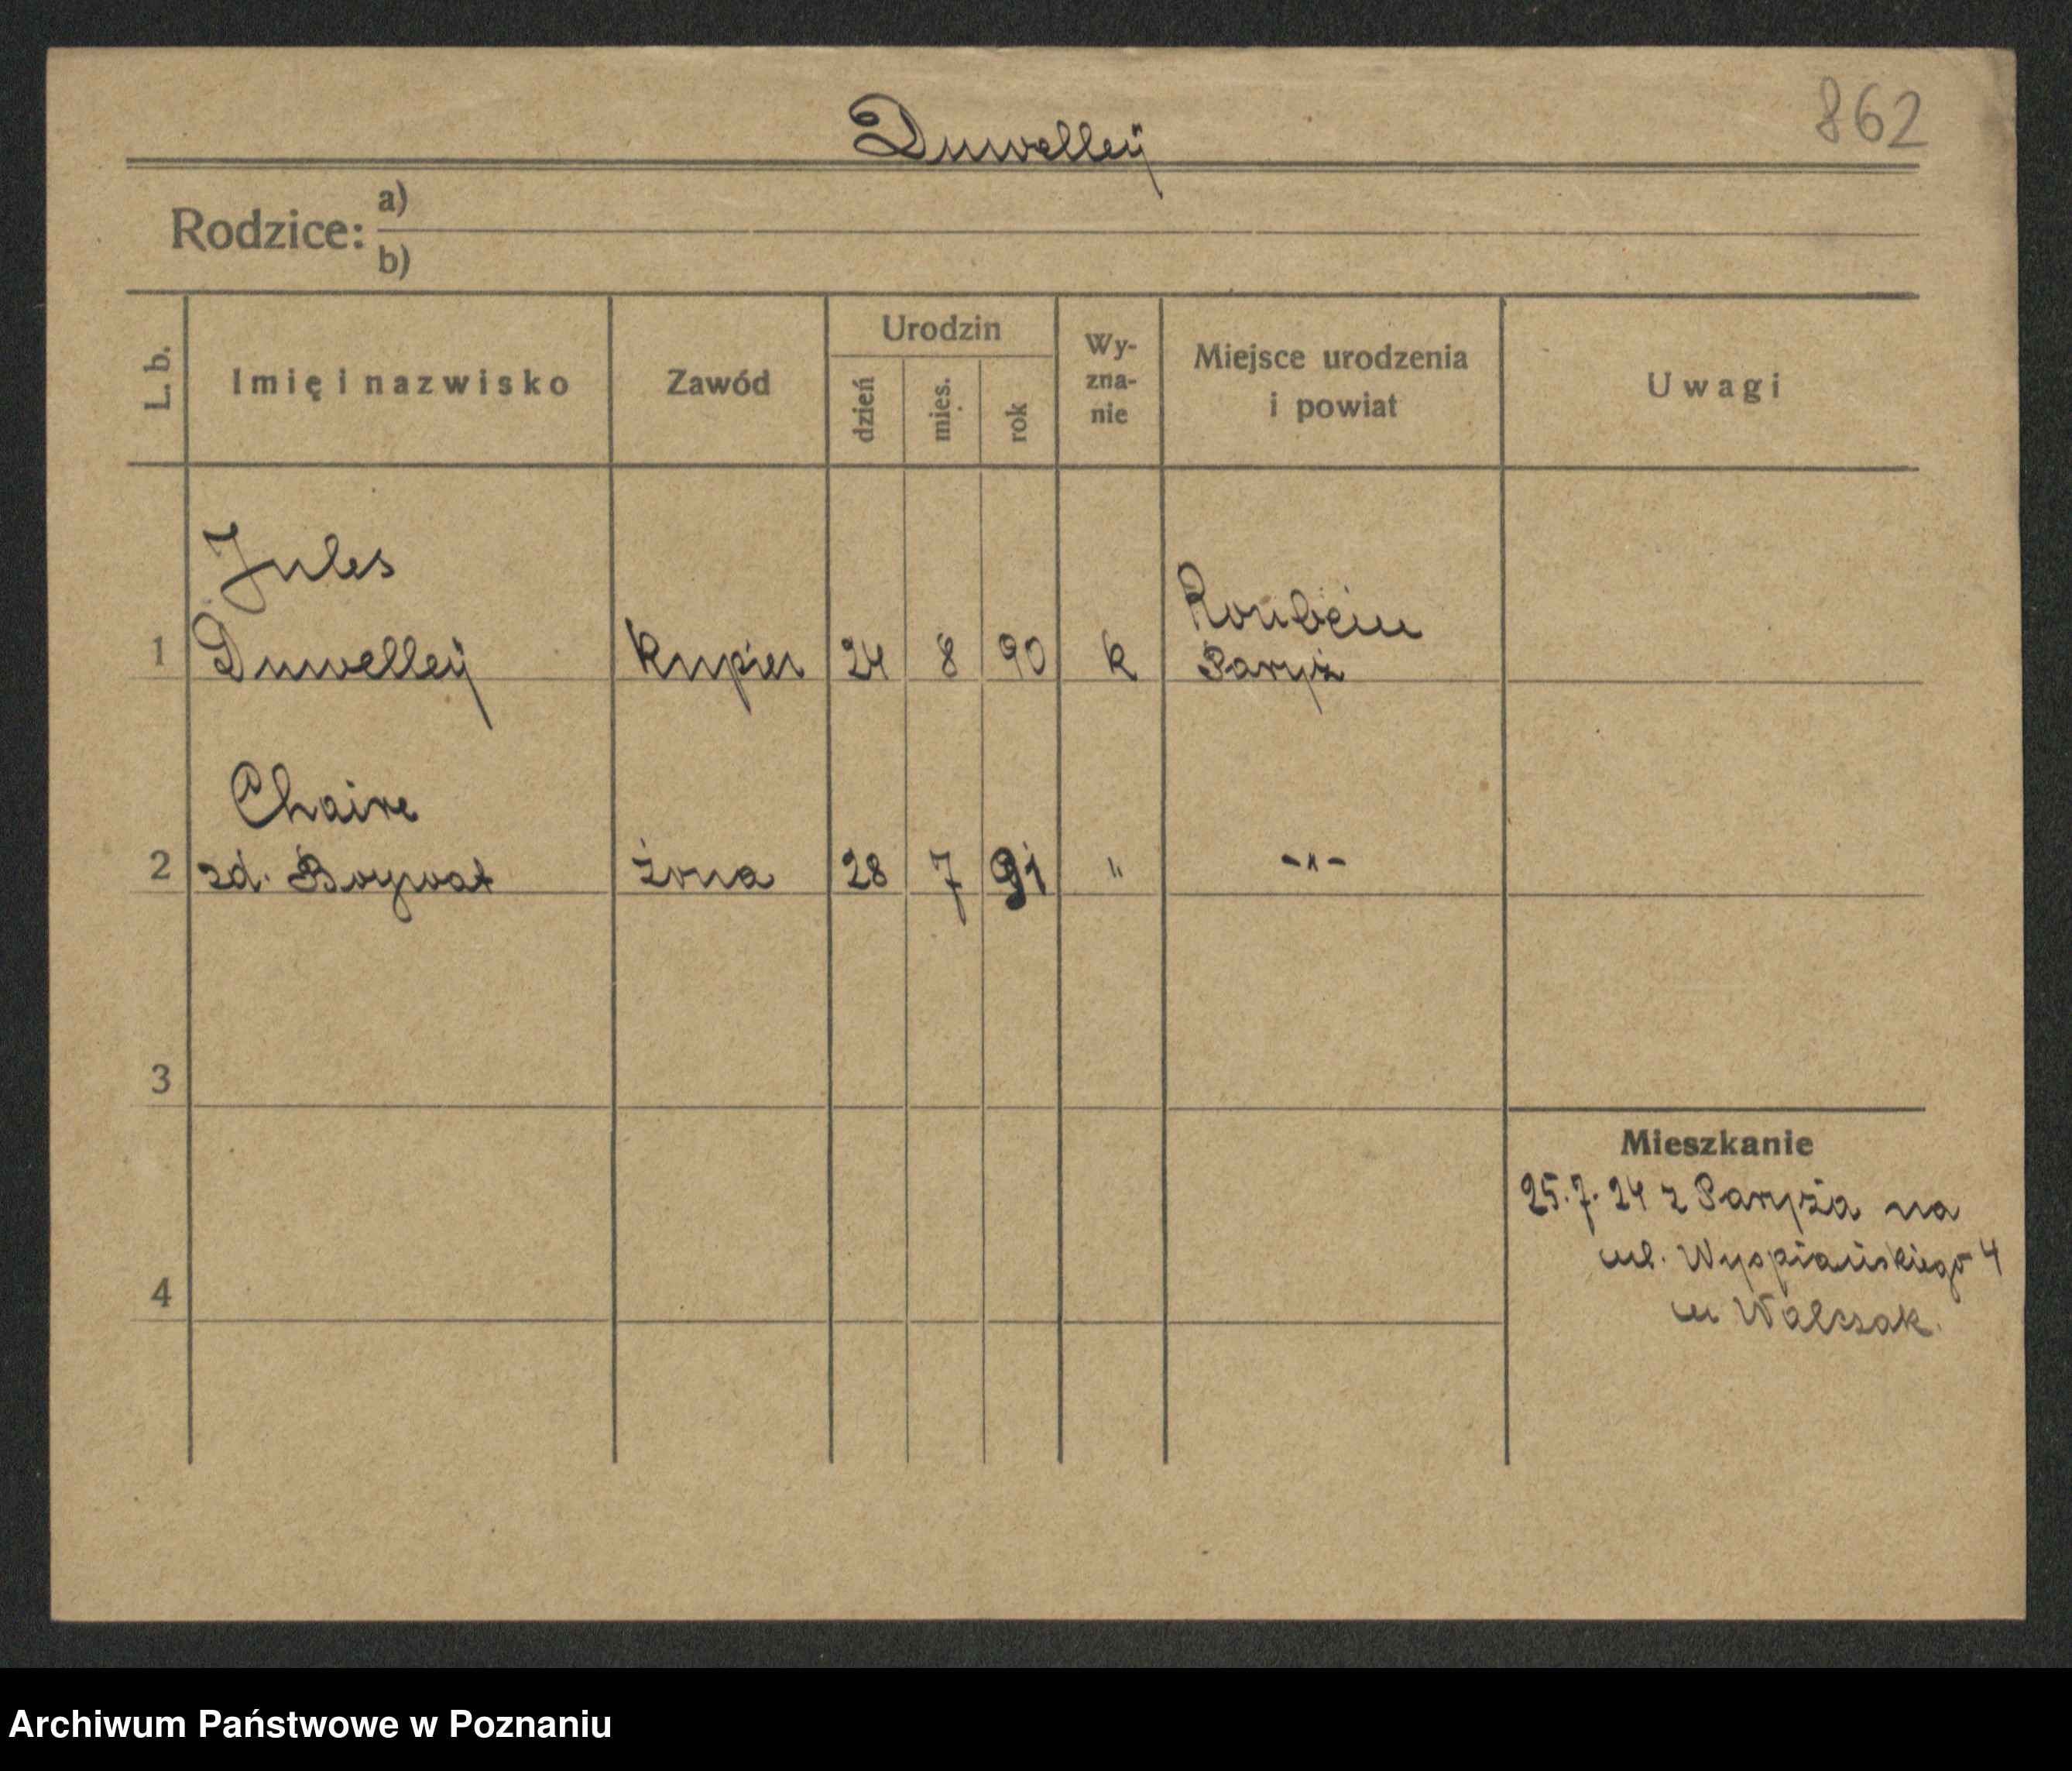 862
Duwelleÿ
Rodzice: a)
b)
L. b.
Imię i nazwisko
Zawód
Urodzin
dzień
mies.
rok
Wy-
zna-
nie
Miejsce urodzenia
i powiat
Uwagi
Jules
1 Duwelleÿ kupiec 24 8 90 k
Paryż
Chaire
2 zd. żona 28 7 91 " -"-
3
4
Mieszkanie
25.7.24 z Paryża na
ul. Wyspiańskiego 4
u Walczak.
Archiwum Państwowe w Poznaniu